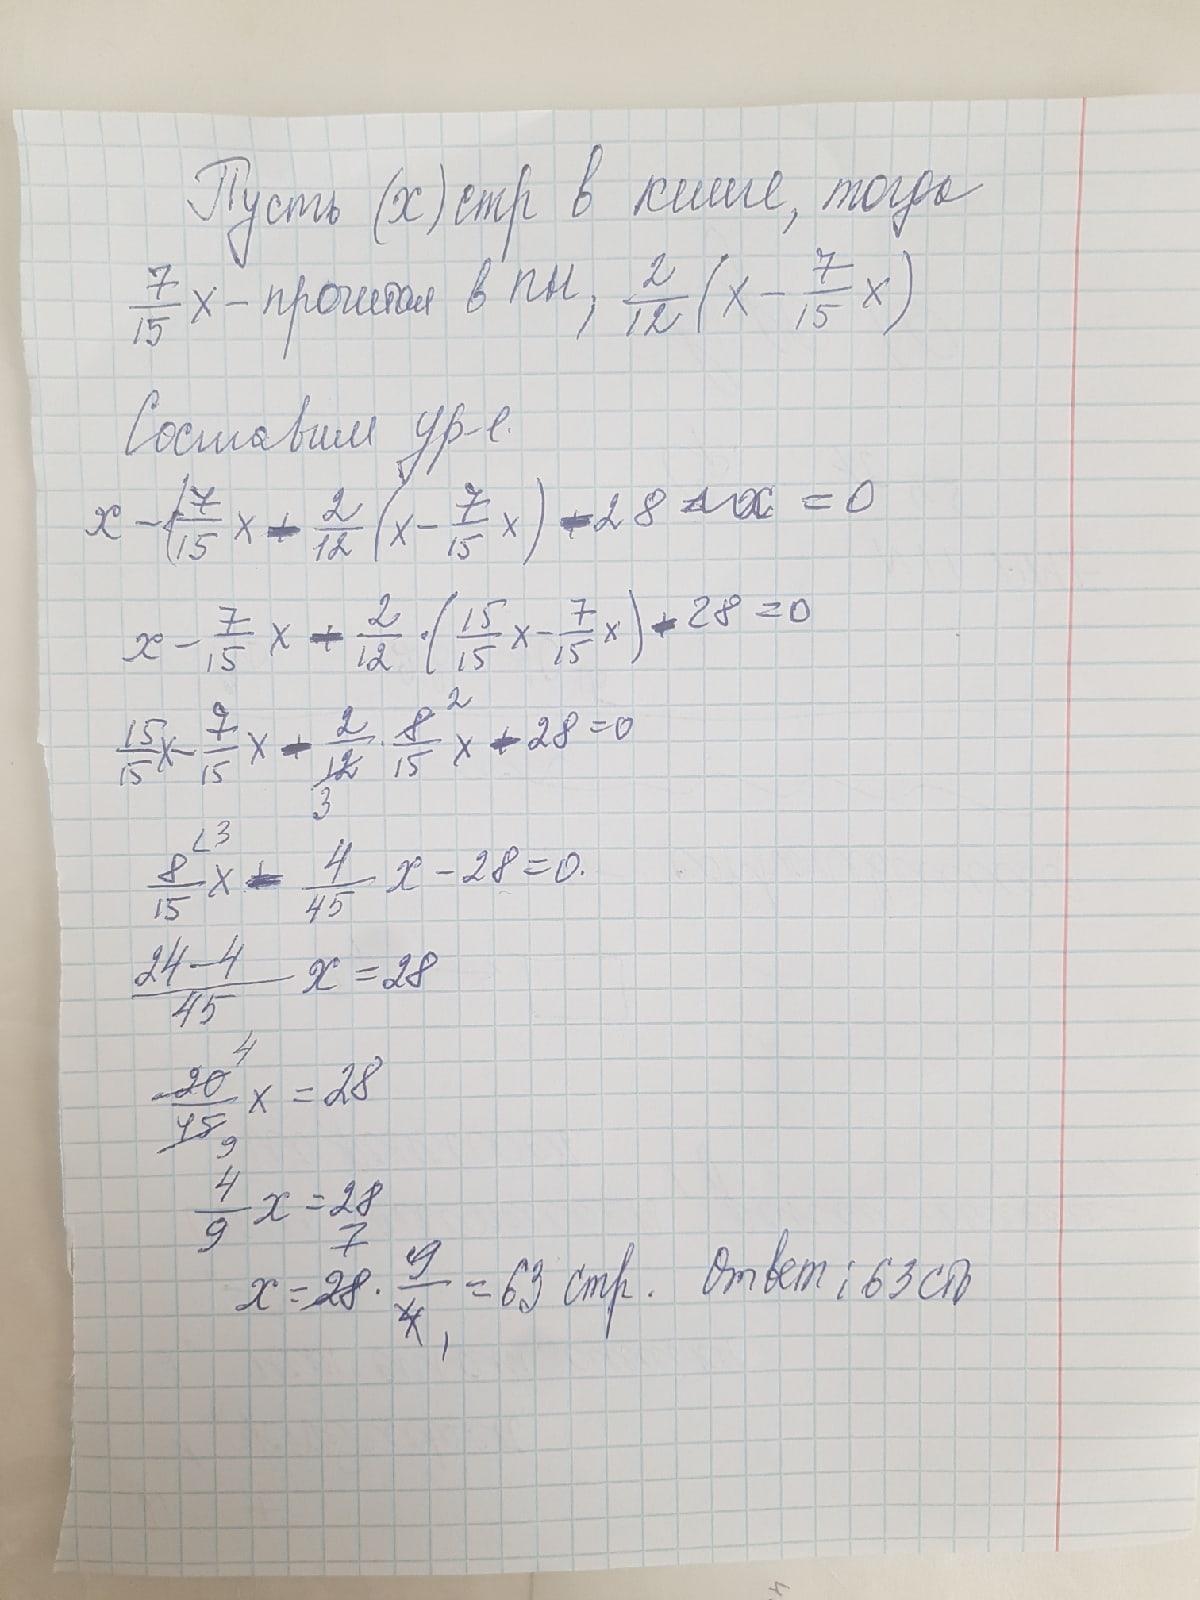 Пусть (х) стр в книге, тогда
7/15 х – прочитал в ПН, 2/12 (х – 7/15 х)
Составим ур-е.
х – (7/15 х + 2/12 (х – 7/15 х) - 28 = 0
х – 7/15 х - 2/12 · (15/15 х – 7/15 х) - 28 = 0
15/15 х – 7/15 х - 2/12 3 · 8/15 2 х - 28 = 0
8/15 3 х - 4/45 х – 28 = 0.
24–4/45 х = 28
20/45 4 9 х = 28
4/9 х = 28
х = 28 7 · 9/4 1 = 63 стр. Ответ: 63 стр